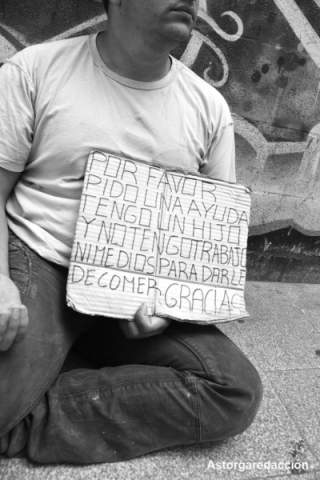 POR FAVOR
PIDO UNA AYUDA
TENGO UN HIJO
Y NO TENGO TRABAJO
NI MEDIOS PARA DARLE
DE COMER GRACIAS
Astorgaredaccion